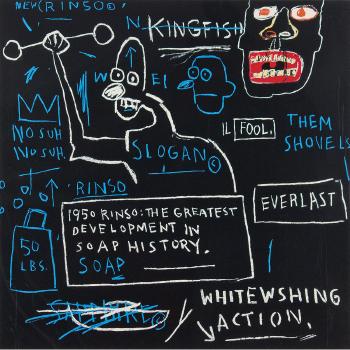 NEW RINSO©
KINGFISH
NO SUH.
NO SUH.
SLOGAN©
IL FOOL.
THEM
SHOVELS
RINSO
1950 RINSO: THE GREATEST
DEVELOPMENT IN
SOAP HISTORY.
SOAP
EVERLAST
50
LBS.
SAPPHIRE©
WHITEWSHING
ACTION.